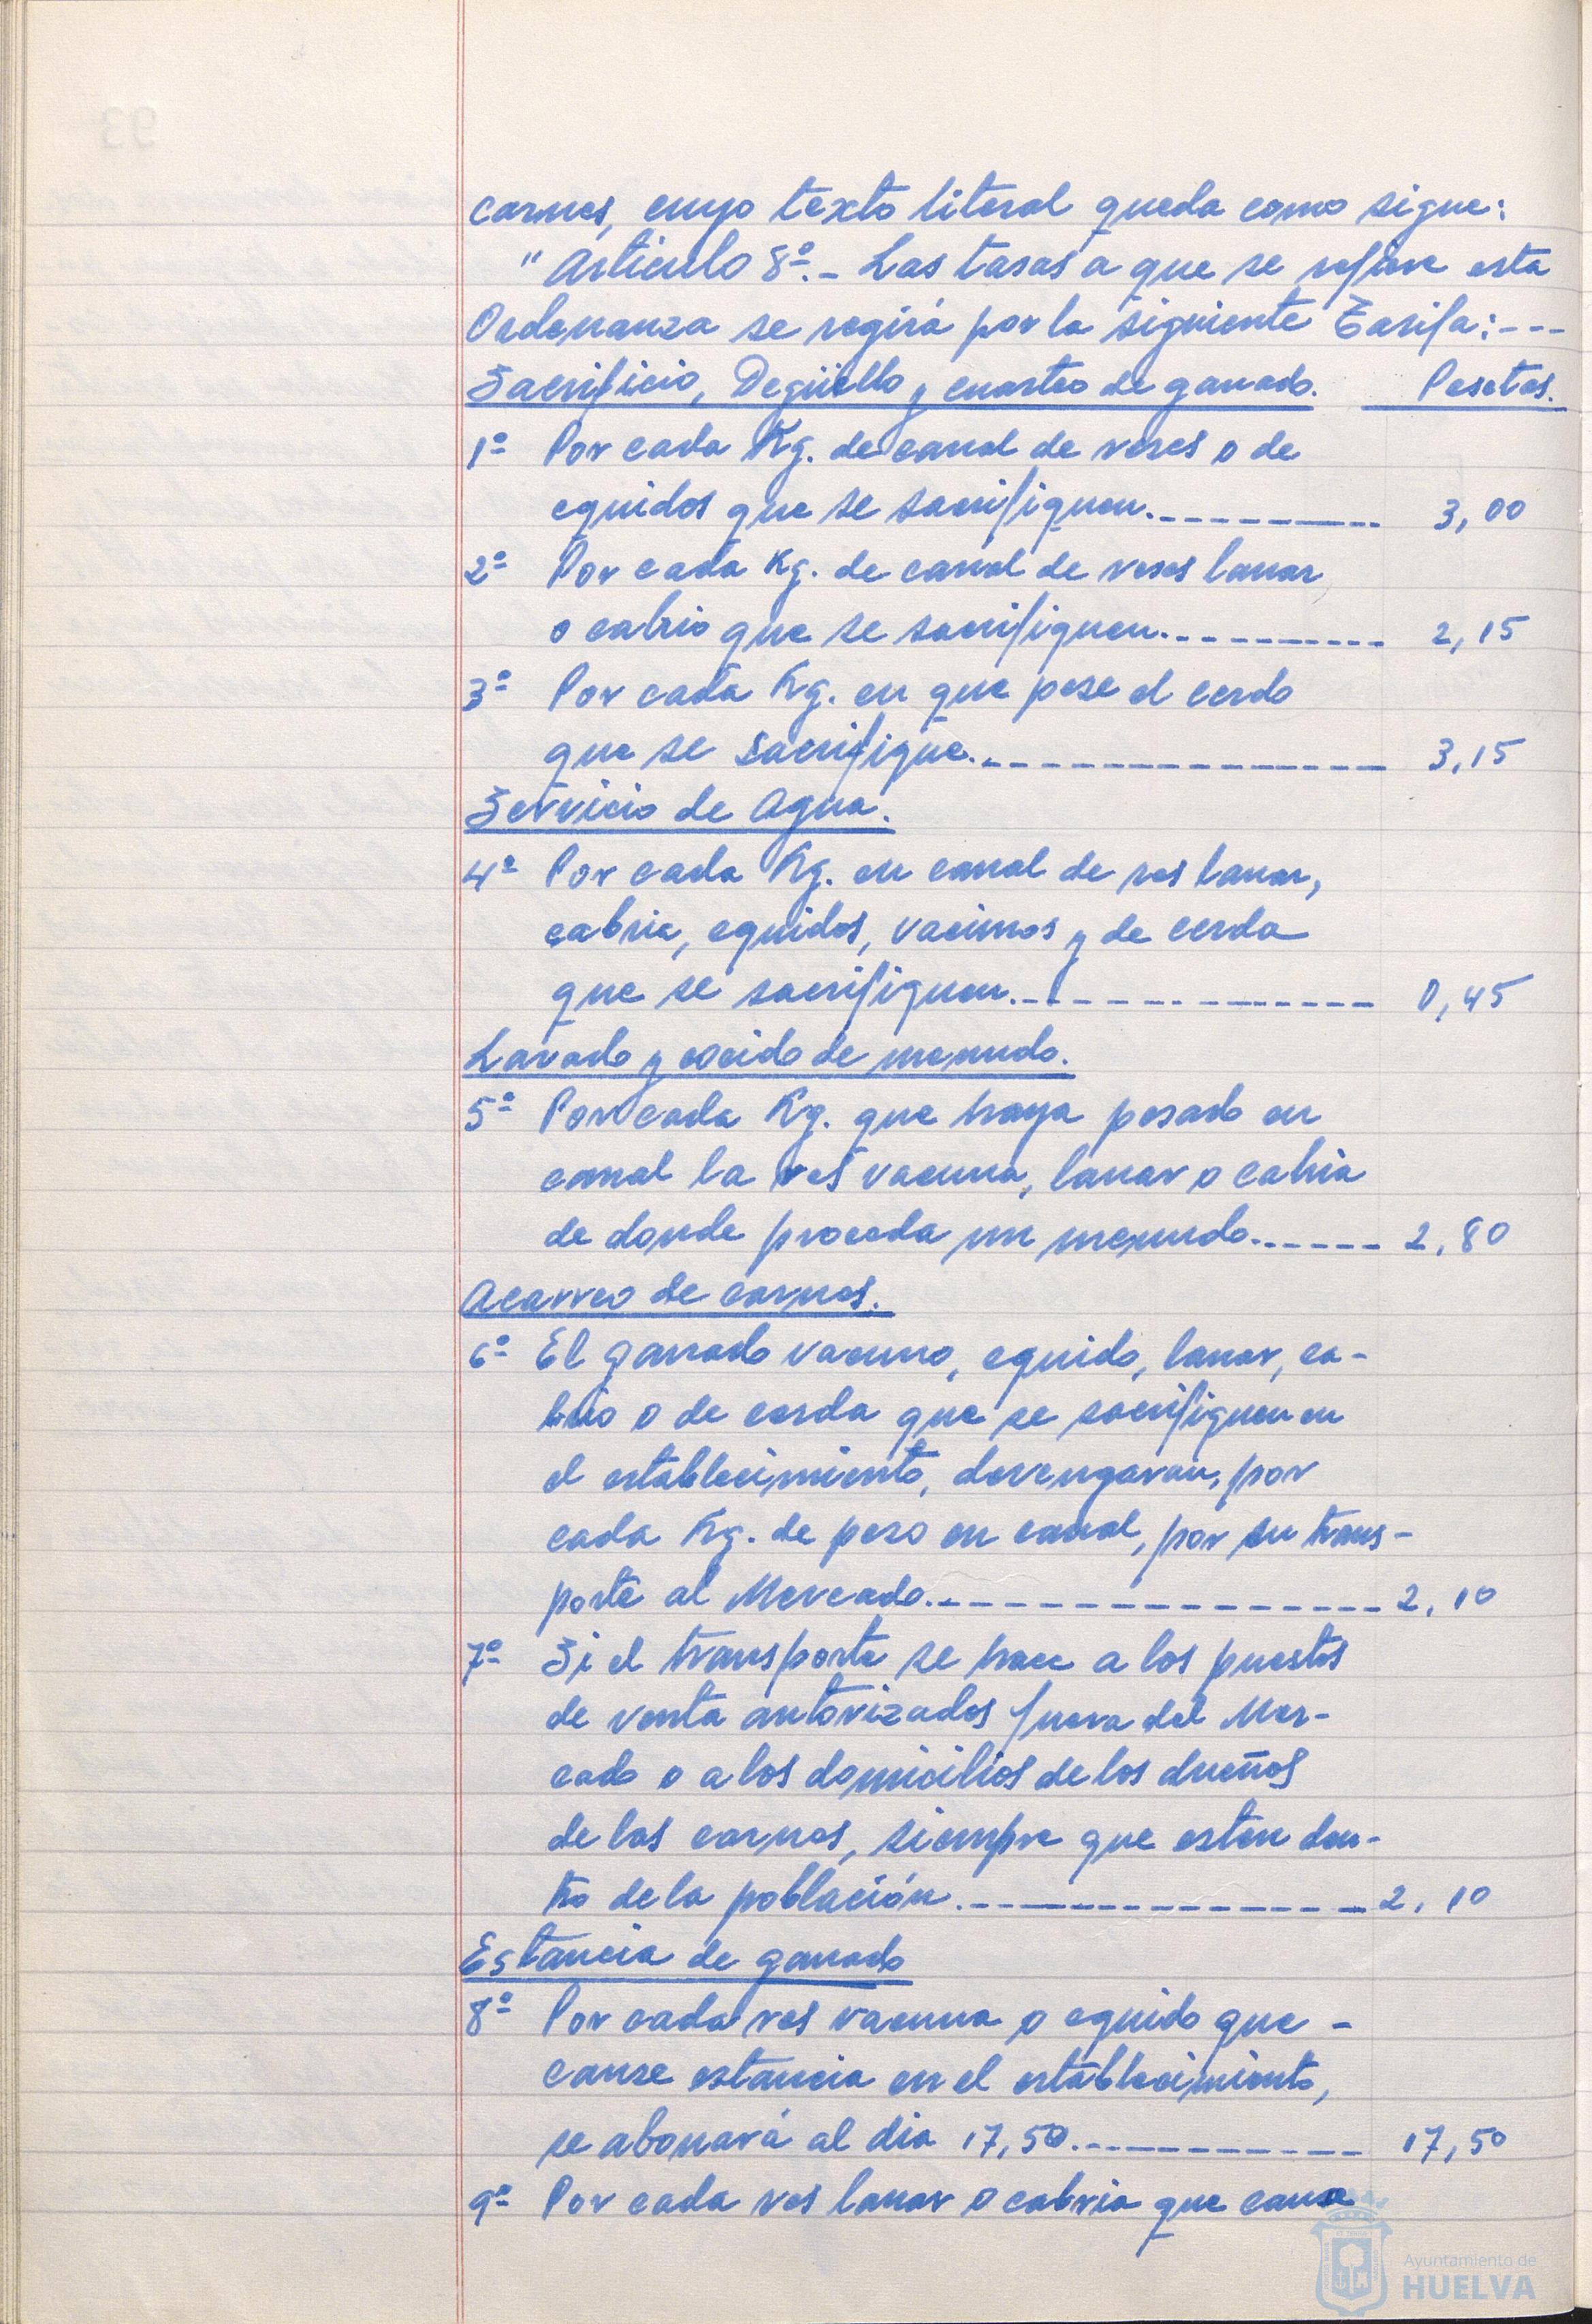 carnes, cuyo texto literal queda como sigue:
"Articulo 8º.- Las tasas a que se refiere esta
Ordenanza se regirá por la siguiente Tarifa:---
Sacrificio, Degüello y cuarteo de ganado. Pesetas.
1º Por cada Kg. de canal de reses o de
equidos que se sacrifiquen.---------- 3,00
2º Por cada Kg. de canal de reses lanar
o cabrio que se sacrifiquen.---------- 2,15
3º Por cada Kg. en que pese el cerdo
que se sacrifique.---------------- 3,15
Servicio de Agua.
4º Por cada Kg. en canal de res lanar,
cabria, equidos, vacunos y de cerda
que se sacrifiquen.-------------- 0,45
Lavado y cocido de menudo.
5º Por cada Kg. que haya pesado en
canal la res vacuna, lanar o cabria
de donde proceda un menudo.------ 2,80
Acarreo de carnes.
6º El ganado vacuno, equido, lanar, ca-
brio o de cerda que se sacrifiquen en
el establecimiento, devengaran, por
cada Kg. de peso en canal, por su trans-
porte al Mercado.---------------- 2,10
7º Si el transporte se hace a los puestos
de venta autorizados fuera del Mer-
cado o a los domicilios de los dueños
de las carnes, siempre que esten den-
tro de la población.---------------- 2,10
Estancia de ganado
8º Por cada res vacuna o equido que -
cause estancia en el establecimiento,
se abonará al dia 17,50.------------ 17,50
9º Por cada res lanar o cabria que cause
Ayuntamiento de
HUELVA